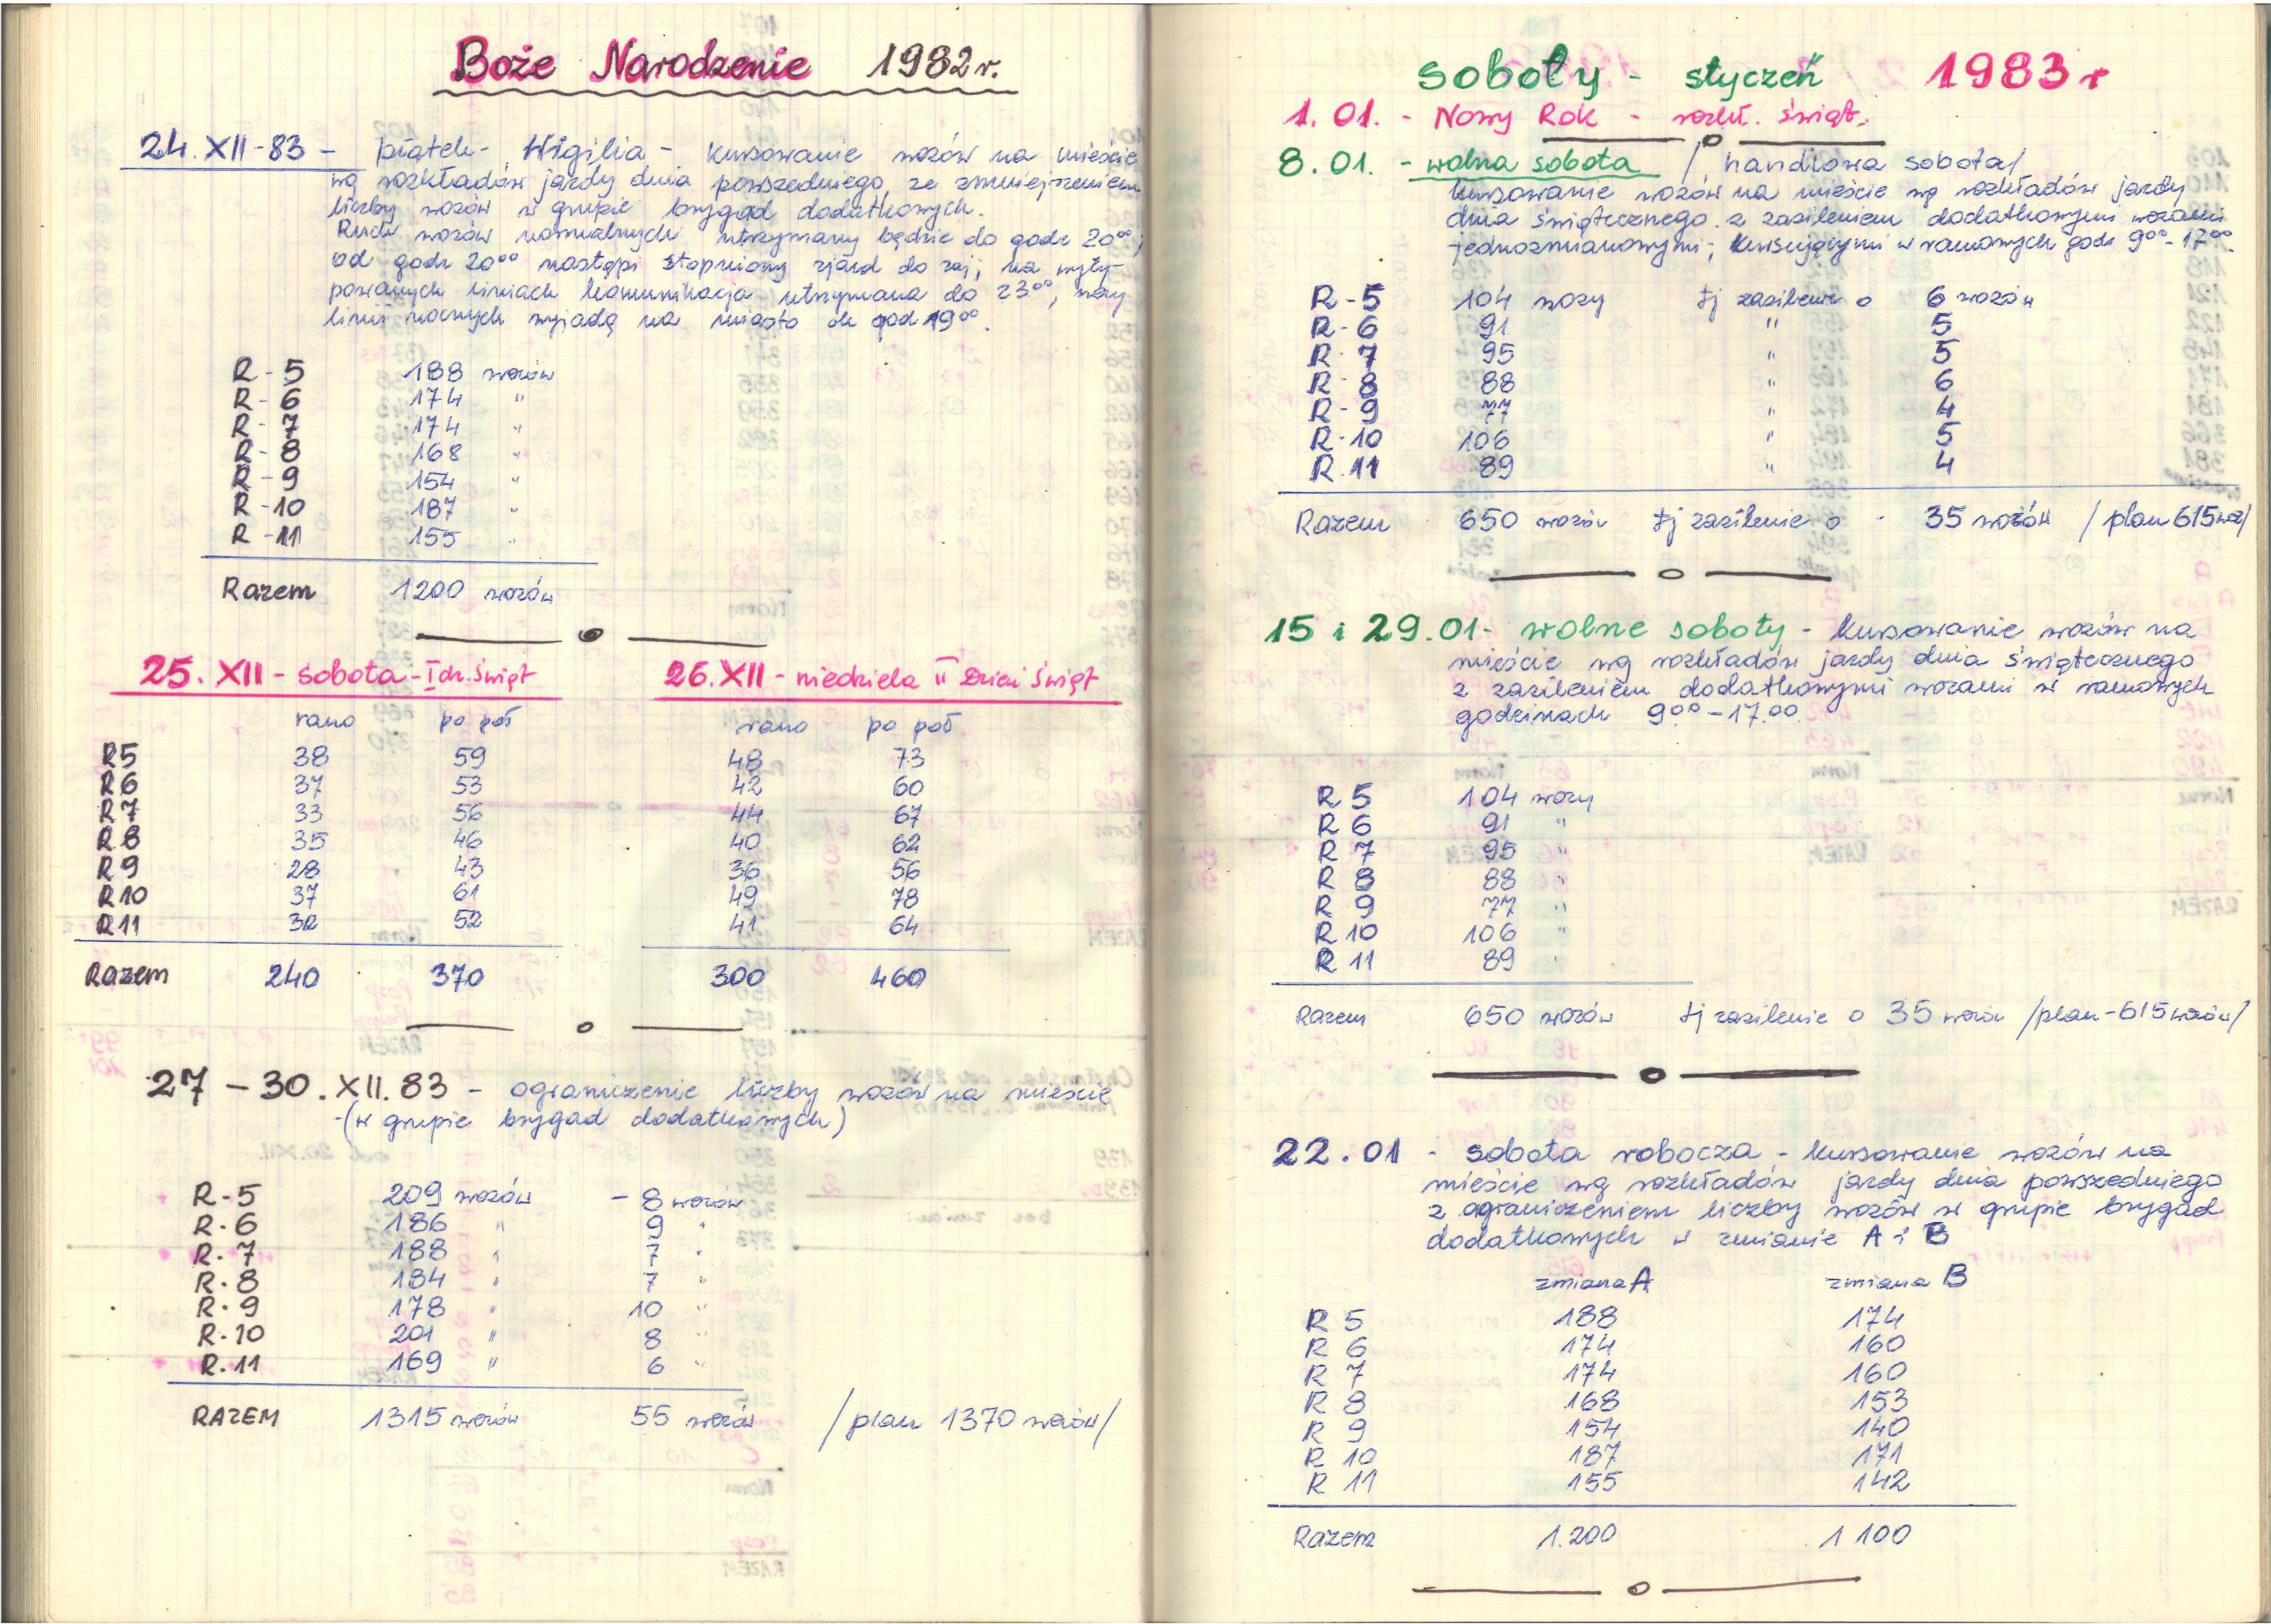 Boże Narodzenie 1982 r.
24.XII-83 - piątek - Wigilia - kursowanie wozów na mieście
wg rozkładów jazdy dnia powszedniego, ze zmniejszeniem
liczby wozów w grupie brygad dodatkowych.
Ruch wozów normalnych utrzymany będzie do godz 20⁰⁰;
od godz 20⁰⁰ nastąpi stopniowy zjazd do zaj; na wyty-
powanych liniach komunikacja utrzymana do 23⁰⁰, wozy
linii nocnych wyjadą na miasto ok god 19⁰⁰.
R - 5 188 wozów
R - 6 174 "
R - 7 174 "
R - 8 168 "
R - 9 154 "
R - 10 187 "
R - 11 155 "
Razem 1200 wozów
25. XII - sobota - I dz. Świąt
rano po poł
R5 38 59
R6 37 53
R7 33 56
R8 35 46
R9 28 43
R10 37 61
R11 32 52
Razem 240 370
26. XII - niedziela II Dzień Świąt
rano po poł
48 73
42 60
44 67
40 62
36 56
49 78
41 64
300 460
27 - 30. XII. 83 - ograniczenie liczby wozów na mieście
- (w grupie brygad dodatkowych)
R - 5 209 wozów - 8 wozów
R - 6 186 " 9 "
R - 7 188 " 7 "
R - 8 184 " 7 "
R - 9 178 " 10 "
R - 10 201 " 8 "
R - 11 169 " 6 "
RAZEM 1315 wozów 55 wozów /plan 1370 wozów/
Soboty - styczeń 1983 r
1. 01. - Nowy Rok - rozkł. świąt.
8. 01. - wolna sobota / handlowa sobota/
kursowanie wozów na mieście wg rozkładów jazdy
dnia świątecznego z zasileniem dodatkowymi wozami
jednozmianowymi; kursującymi w ramowych godz 9⁰⁰ - 17⁰⁰.
R - 5 104 wozy tj zasilenie o 6 wozów
R - 6 91 " 5
R - 7 95 " 5
R - 8 88 " 6
R - 9 77 " 4
R - 10 106 " 5
R. 11 89 " 4
Razem 650 wozów tj zasilenie o - 35 wozów /plan 615 woz/
15 i 29.01 - wolne soboty - kursowanie wozów na
mieście wg rozkładów jazdy dnia świątecznego
z zasileniem dodatkowymi wozami w ramowych
godzinach 9⁰⁰ - 17.⁰⁰
R 5 104 wozy
R 6 91 "
R 7 95 "
R 8 88 "
R 9 77 "
R 10 106 "
R 11 89 "
Razem 650 wozów tj zasilenie o 35 wozów /plan - 615 wozów/
22. 01 - sobota robocza - kursowanie wozów na
mieście wg rozkładów jazdy dnia powszedniego
z ograniczeniem liczby wozów w grupie brygad
dodatkowych w zmianie A i B
zmiana A zmiana B
R 5 188 174
R 6 174 160
R 7 174 160
R 8 168 153
R 9 154 140
R 10 187 171
R 11 155 142
Razem 1.200 1 100